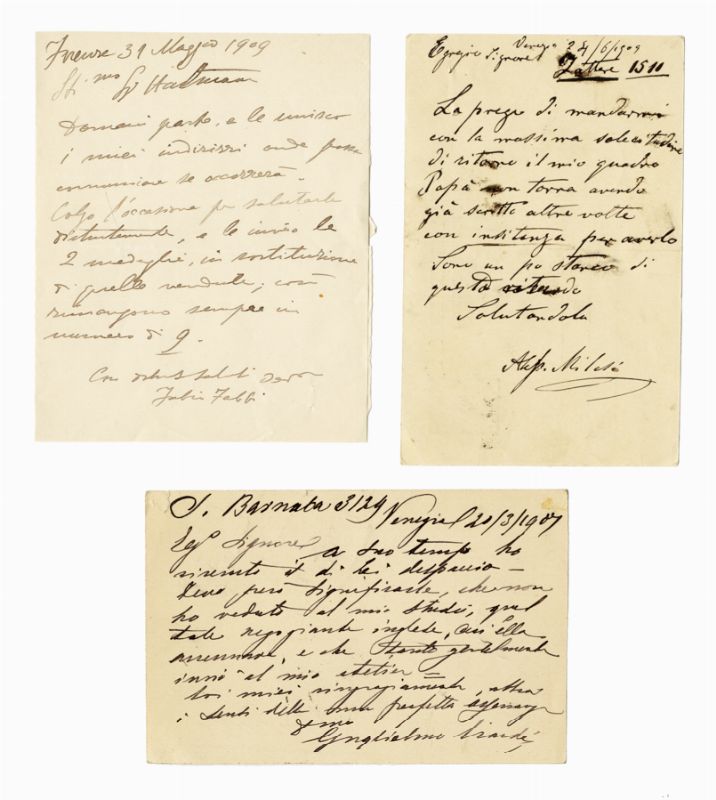 Firenze 31 Maggio 1909
St.mo Sr Hartmann
Domani parto, e le unisco
i miei indirizzi onde possa
comunicare se occorrerà.
Colgo l'occasione per salutarla
distintamente, e le invio le
2 medaglie, in sostituzione
di quelle vendute, così
rimangono sempre in
numero di 9.
Con distinti saluti
Fabio Fabbi
Venezia 24/6/1909
Egregio Signore
Zattere 1511
La prego di mandarmi
con la massima solecitudine
di ritorno il mio quadro
Papà non torna avendo
già scritto altre volte
con insistenza per averlo
Sono un po stanco di
questo ritardo
Salutandola
Aless. Milesi
S. Barnaba 3129 Venezia 20/3/1907
Eg.o Signore
a suo tempo ho
ricevuto il di lei dispaccio –
Devo però significarle, che non
ho veduto al mio studio, quel
tale negoziante inglese, cui Ella
accennava, e che tanto gentilmente
inviò al mio atelier =
Coi miei ringraziamenti,
i sensi della mia perfetta
Guglielmo Ciardi